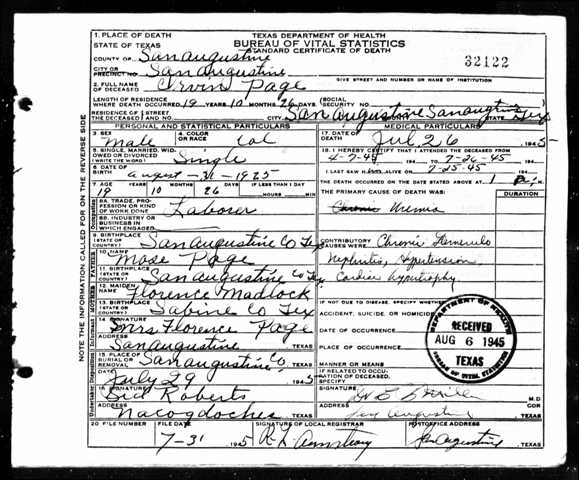 1. PLACE OF DEATH TEXAS DEPARTMENT OF HEALTH
STATE OF TEXAS BUREAU OF VITAL STATISTICS
STANDARD CERTIFICATE OF DEATH
COUNTY OF San Augustine
32122
CITY OR PRECINCT NO. San Augustine
GIVE STREET AND NUMBER OR NAME OF INSTITUTION
2. FULL NAME OF DECEASED Ervin Page
LENGTH OF RESIDENCE WHERE DEATH OCCURRED 19 YEARS 10 MONTHS 26 DAYS (SOCIAL SECURITY NO.
RESIDENCE OF THE DECEASED STREET AND NO. CITY San Augustine San Augustine STATE Tex
PERSONAL AND STATISTICAL PARTICULARS MEDICAL PARTICULARS
3 SEX Male 4. COLOR OR RACE Col
17 DATE OF DEATH Jul 26 1945
5. SINGLE, MARRIED, WIDOWED OR DIVORCED (WRITE THE WORD) Single
18. I HEREBY CERTIFY THAT I ATTENDED THE DECEASED FROM
4-7-45 194 TO 7-26-45 194
6 DATE OF BIRTH August -31- 1925
I LAST SAW ALIVE ON 7-25-45 194
7 AGE 19 YEARS 10 MONTHS 26 DAYS IF LESS THAN 1 DAY HOURS MIN
THE DEATH OCCURRED ON THE DATE STATED ABOVE AT 1 P.M.
THE PRIMARY CAUSE OF DEATH WAS: DURATION
8A. TRADE, PROFESSION OR KIND OF WORK DONE Laborer
Chronic Uremia
8B. INDUSTRY OR BUSINESS IN WHICH ENGAGED
9 BIRTHPLACE (STATE OR COUNTRY) San Augustine Co Tex
CONTRIBUTORY CAUSES WERE Chronic Glomerulo
10 NAME Mose Page
Nephritis, Hypertension
11 BIRTHPLACE (STATE OR COUNTRY) San Augustine Co Tex
Cardiac hypertrophy
12. MAIDEN NAME Florence Madlock
IF NOT DUE TO DISEASE, SPECIFY WHETHER
13 BIRTHPLACE (STATE OR COUNTRY) Sabine Co Tex
ACCIDENT, SUICIDE, OR HOMICIDE
14 SIGNATURE Mrs Florence Page
DATE OF OCCURRENCE
ADDRESS San Augustine TEXAS
PLACE OF OCCURRENCE
15 PLACE OF BURIAL OR REMOVAL San Augustine Co. TEXAS
MANNER OR MEANS
DATE July 29 1945
IF RELATED TO OCCUPATION OF DECEASED, SPECIFY
16 SIGNATURE Sid Roberts
SIGNATURE M.D
ADDRESS Nacogdoches TEXAS
ADDRESS San Augustine COR TEXAS
20 FILE NUMBER FILE DATE SIGNATURE OF LOCAL REGISTRAR POSTOFFICE ADDRESS
7-31 1945 R L Armstrong San Augustine TEXAS
DEPARTMENT OF HEALTH
RECEIVED
AUG 6 1945
TEXAS
BUREAU OF VITAL STATISTICS
NOTE THE INFORMATION CALLED FOR ON THE REVERSE SIDE
Occupation
FATHER
MOTHER
Informant
Disposition
Undertaker